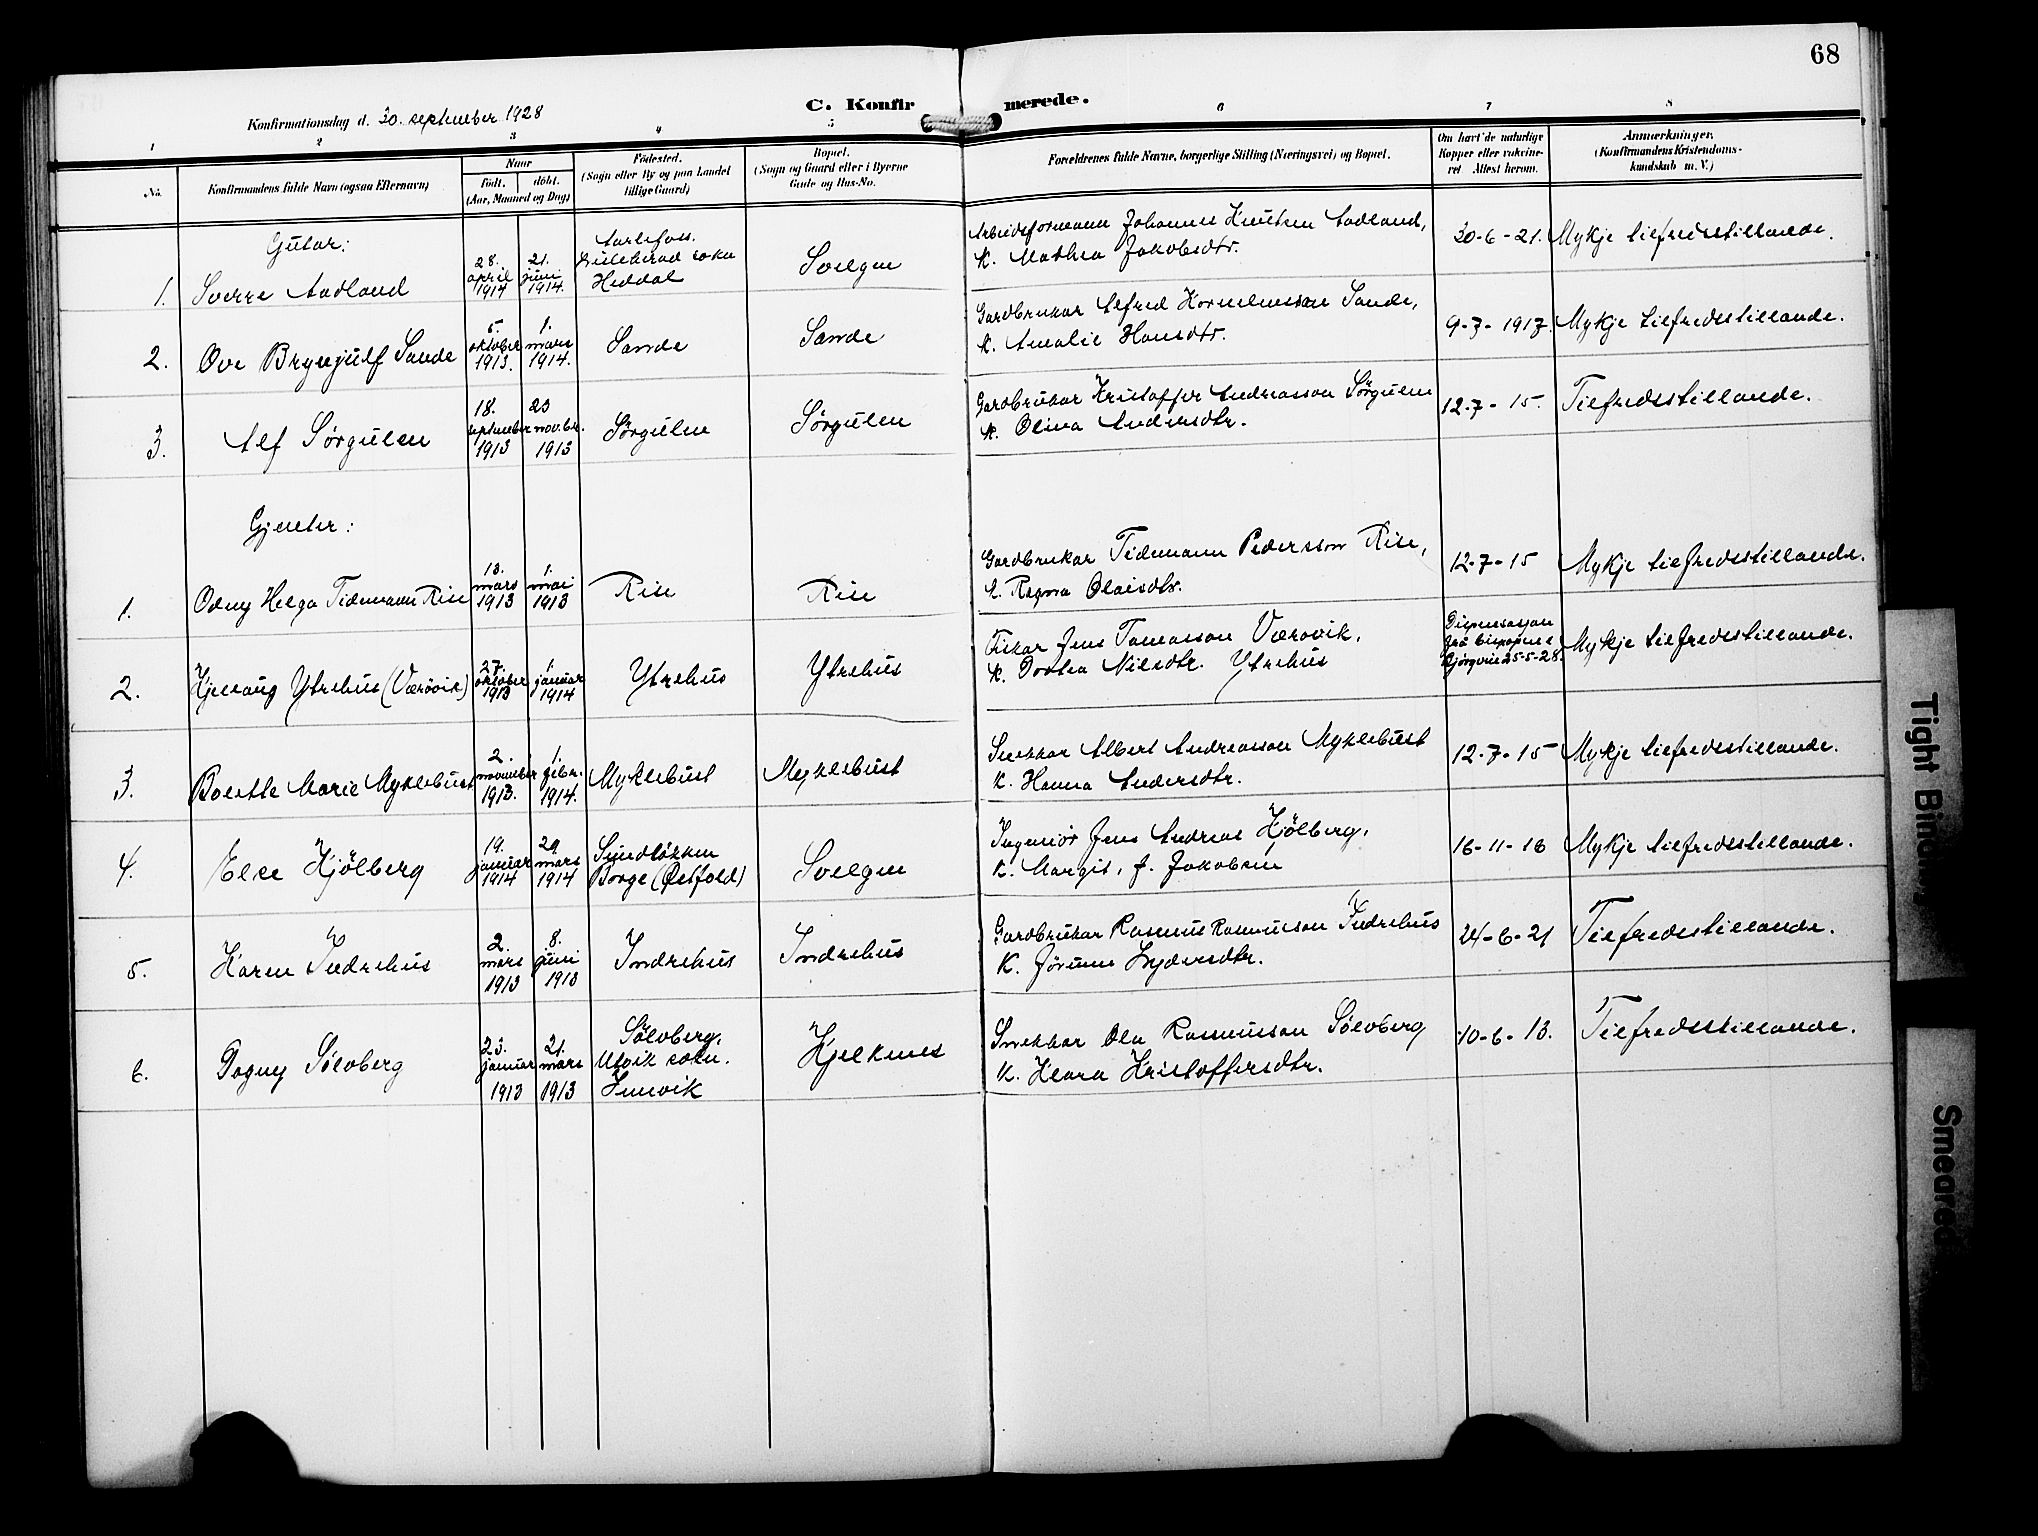 68
C. Konfirmerede.
Konfirmationsdag d. 30. september 1928
1 2 3 4 5 6 7 8
No.
Konfirmandens fulde Navn (ogsaa Efternavn)
Naar
født. døbt.
(Aar, Maaned og Dag)
Fødested.
(Sogn eller By og paa Landet
tillige Gaard)
Bopæl.
(Sogn og Gaard eller i Byerne
Gade og Hus-No.
Forældrenes fulde Navne, borgerlige Stilling (Næringsvei) og Bopæl.
Om havt de naturlige
Kopper eller vakcine-
ret Attest herom.
Anmærkninger,
(Konfirmandens Kristendoms-
kundskab m. V.)
Gutar:
1. Sverre Aadland
28. april 1914
21. juni 1914.
soka
Heddal
Svelgen
Arbeidsformann Johannes Knutsen Aadland,
k. Mathea Jakobsdtr.
30-6-21.
Mykje tilfredsstillande.
2. Ove Brynjulf Sande
5. oktober 1913.
1. mars 1914.
Sande
Sande
Gardbrukar Alfred Kornelinssen Sande,
k. Amalie Hansdtr.
9-7-1917.
Mykje tilfredsstillande.
3. Alf Sørgulen
18. september 1913
23 novbr. 1913
Sørgulen
Sørgulen
Gardbrukar Kristoffer Andreasson Sørgulen
k. Olina Andersdtr.
12-7-15.
Tilfredsstillande.
Gjenter:
1. Odny Helga Tidemann Rise
13. mars 1913
1. mai 1913
Rise
Rise
Gardbrukar Tidemann Pedersson Rise,
k. Ragna Olaisdtr.
12-7-15
Mykje tilfredsstillande.
2. Hjellaug Ytrehus (Værøvik)
27. oktober 1913
1. januar 1914
Ytrehus
Ytrehus
Fiskar Jens Tomasson Værøvik,
k. Dortea Nilsdtr. Ytrehus
Dispensasjon
frå bispopne i
Bjørgvin 25-5-28.
Mykje tilfredsstillande.
3. Boletle Marie Myklebust
2. november 1913.
1. febr. 1914.
Myklebust
Myklebust
Snekkar Albert Andreasson Myklebust
k. Hanna Andersdtr.
12-7-15
Mykje tilfredsstillande.
4. Else Kjølberg
19. januar 1914
29. mars 1914
Sundløkken
Borge (Østfold)
Svelgen
Ingeniør Jens Andreas Kjølberg,
k. Margit, f. Jakobsen
16-11-18
Mykje tilfredsstillande.
5. Karen Indrehus
2. mars 1913
8. juni 1913
Indrehus
Indrehus
Gardbrukar Rasmus Rasmusson Indrehus
k. Jørunn Lydersdtr.
24-6-21
Tilfredsstillande.
6. Dagny Sølvberg
23. januar 1913
21. mars 1913
Sølvberg,
Utvik sokn.
Innvik
Kjelkenes
Snekkar Ola Rasmusson Sølvberg
k. Klara Kristoffersdtr.
10-6-13.
Tilfredsstillande.
Tight Binding
Smeared